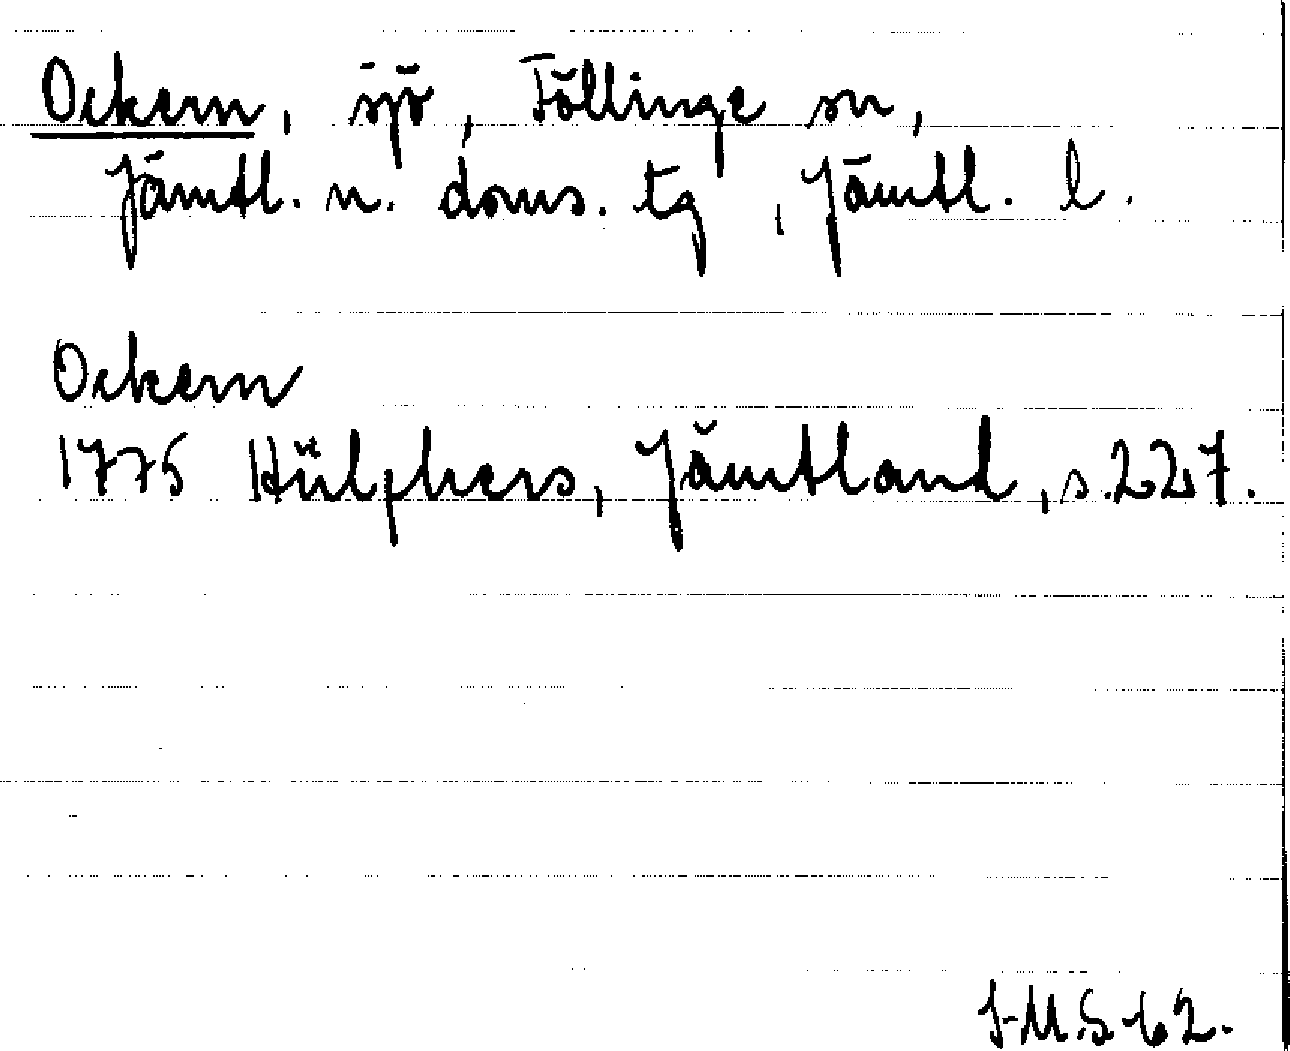 Ockern, sjö, Föllinge sn,
Jämtl. n. doms. tg, Jämtl. l.
Ockern
1775 Hülphers, Jämtland, s. 227.
J-M.S-62.